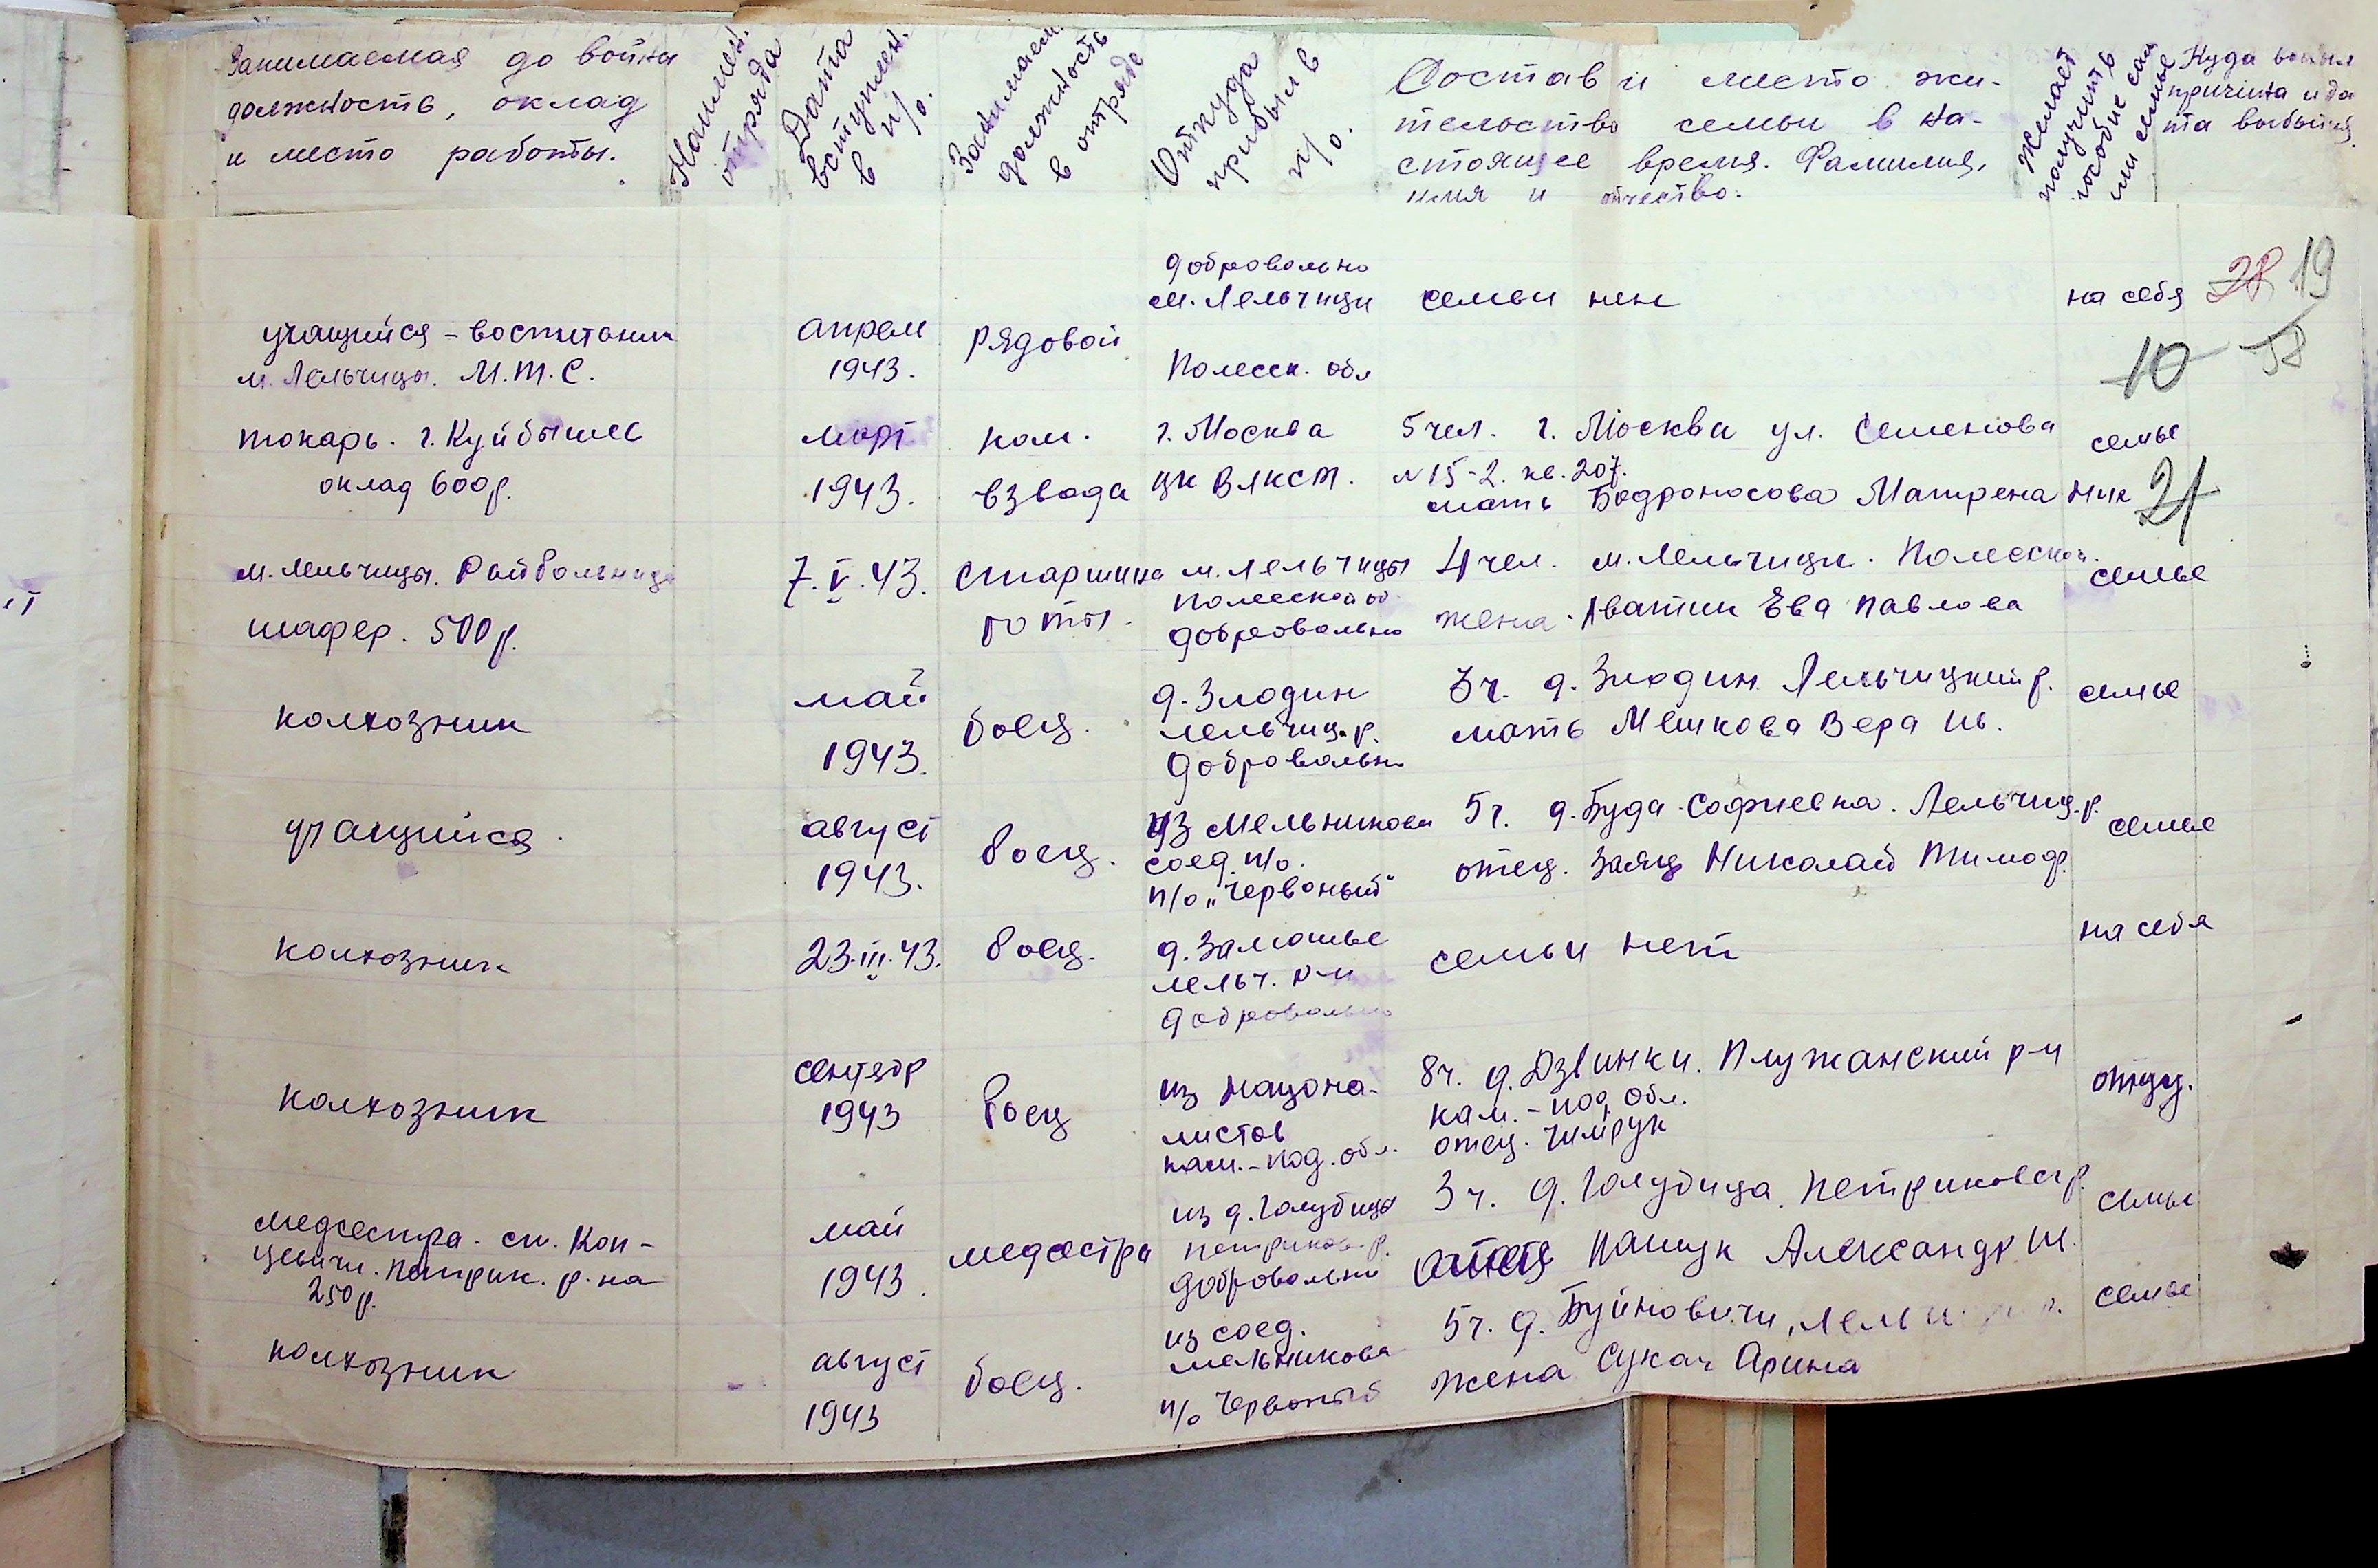 Занимаемая до войны
должность, оклад
и место работы.
Наимен.
отряда
Дата
вступлен.
в
п/о.
Занимаем.
должность
в отряде
Откуда
прибыл в
п/о.
Состав и место жи-
тельство семьи в на-
стоящее время. Фамилия,
имя и отчество.
Желает
получить
пособие сам
или семье
Куда выбыл
причина и да
та выбытия.
учащийся - воспитаник
м. Лельчицы. М.Т.С.
апрел
1943.
рядовой
добровольно
м. Лельчици
Полесск. обл
семьи нен
на себя
28 19
10 58
токарь. г. Куйбышев
оклад 600 р.
март
1943.
ком.
взвода
г. Москва
цк ВЛКСМ.
5 чел. г. Москва ул. Семенова
№15-2. кв. 207.
мать Бодроносова Матрена Ник
семье
21
м. Лельчицы. Райбольница
шафер. 500 р.
7.V.43.
старшина
роты.
м. лельчицы
Полесской об
добровольно
4 чел. м. Лельчици. Полесской.
жена. Аватин Ева Павлова
семье
колхозник
май
1943.
боец.
д. Злодин
лельчиц. р.
добровольн
3 ч. д. Злодин Лельчицкий р.
мать Мешкова Вера Ив.
семье
учащийся.
август
1943.
боец.
из Мельникова
соед. п/о.
п/о „Червоный"
5 ч. д. Буда-Софиевка. Лельчиц. р.
отец. Заяц Николай Тимоф.
семье
колхозник
23.III.43.
боец.
д. Замошье
лельч. р-н
добровольно
семьи нет
на себя
колхозник
сентябр
1943
боец
из нацона-
листов
кам.-под. обл.
8 ч. д. Дзвинки. Плужанский р-н
кам.-под. обл.
отец. Чимрук
отцу.
медсестра. ст. Коп-
цевичи. Петрик. р-на
250 р.
май
1943.
медсестра
из д. Голубицы
петриков. р.
добровольно
3 ч. д. Голубица. Петриковс. р.
Пашук Александр И.
семье
колхозник
август
1943
боец.
из соед.
мельникова
п/о Червоный
5 ч. д. Буйновичи,
жена Сукач Арина
семье